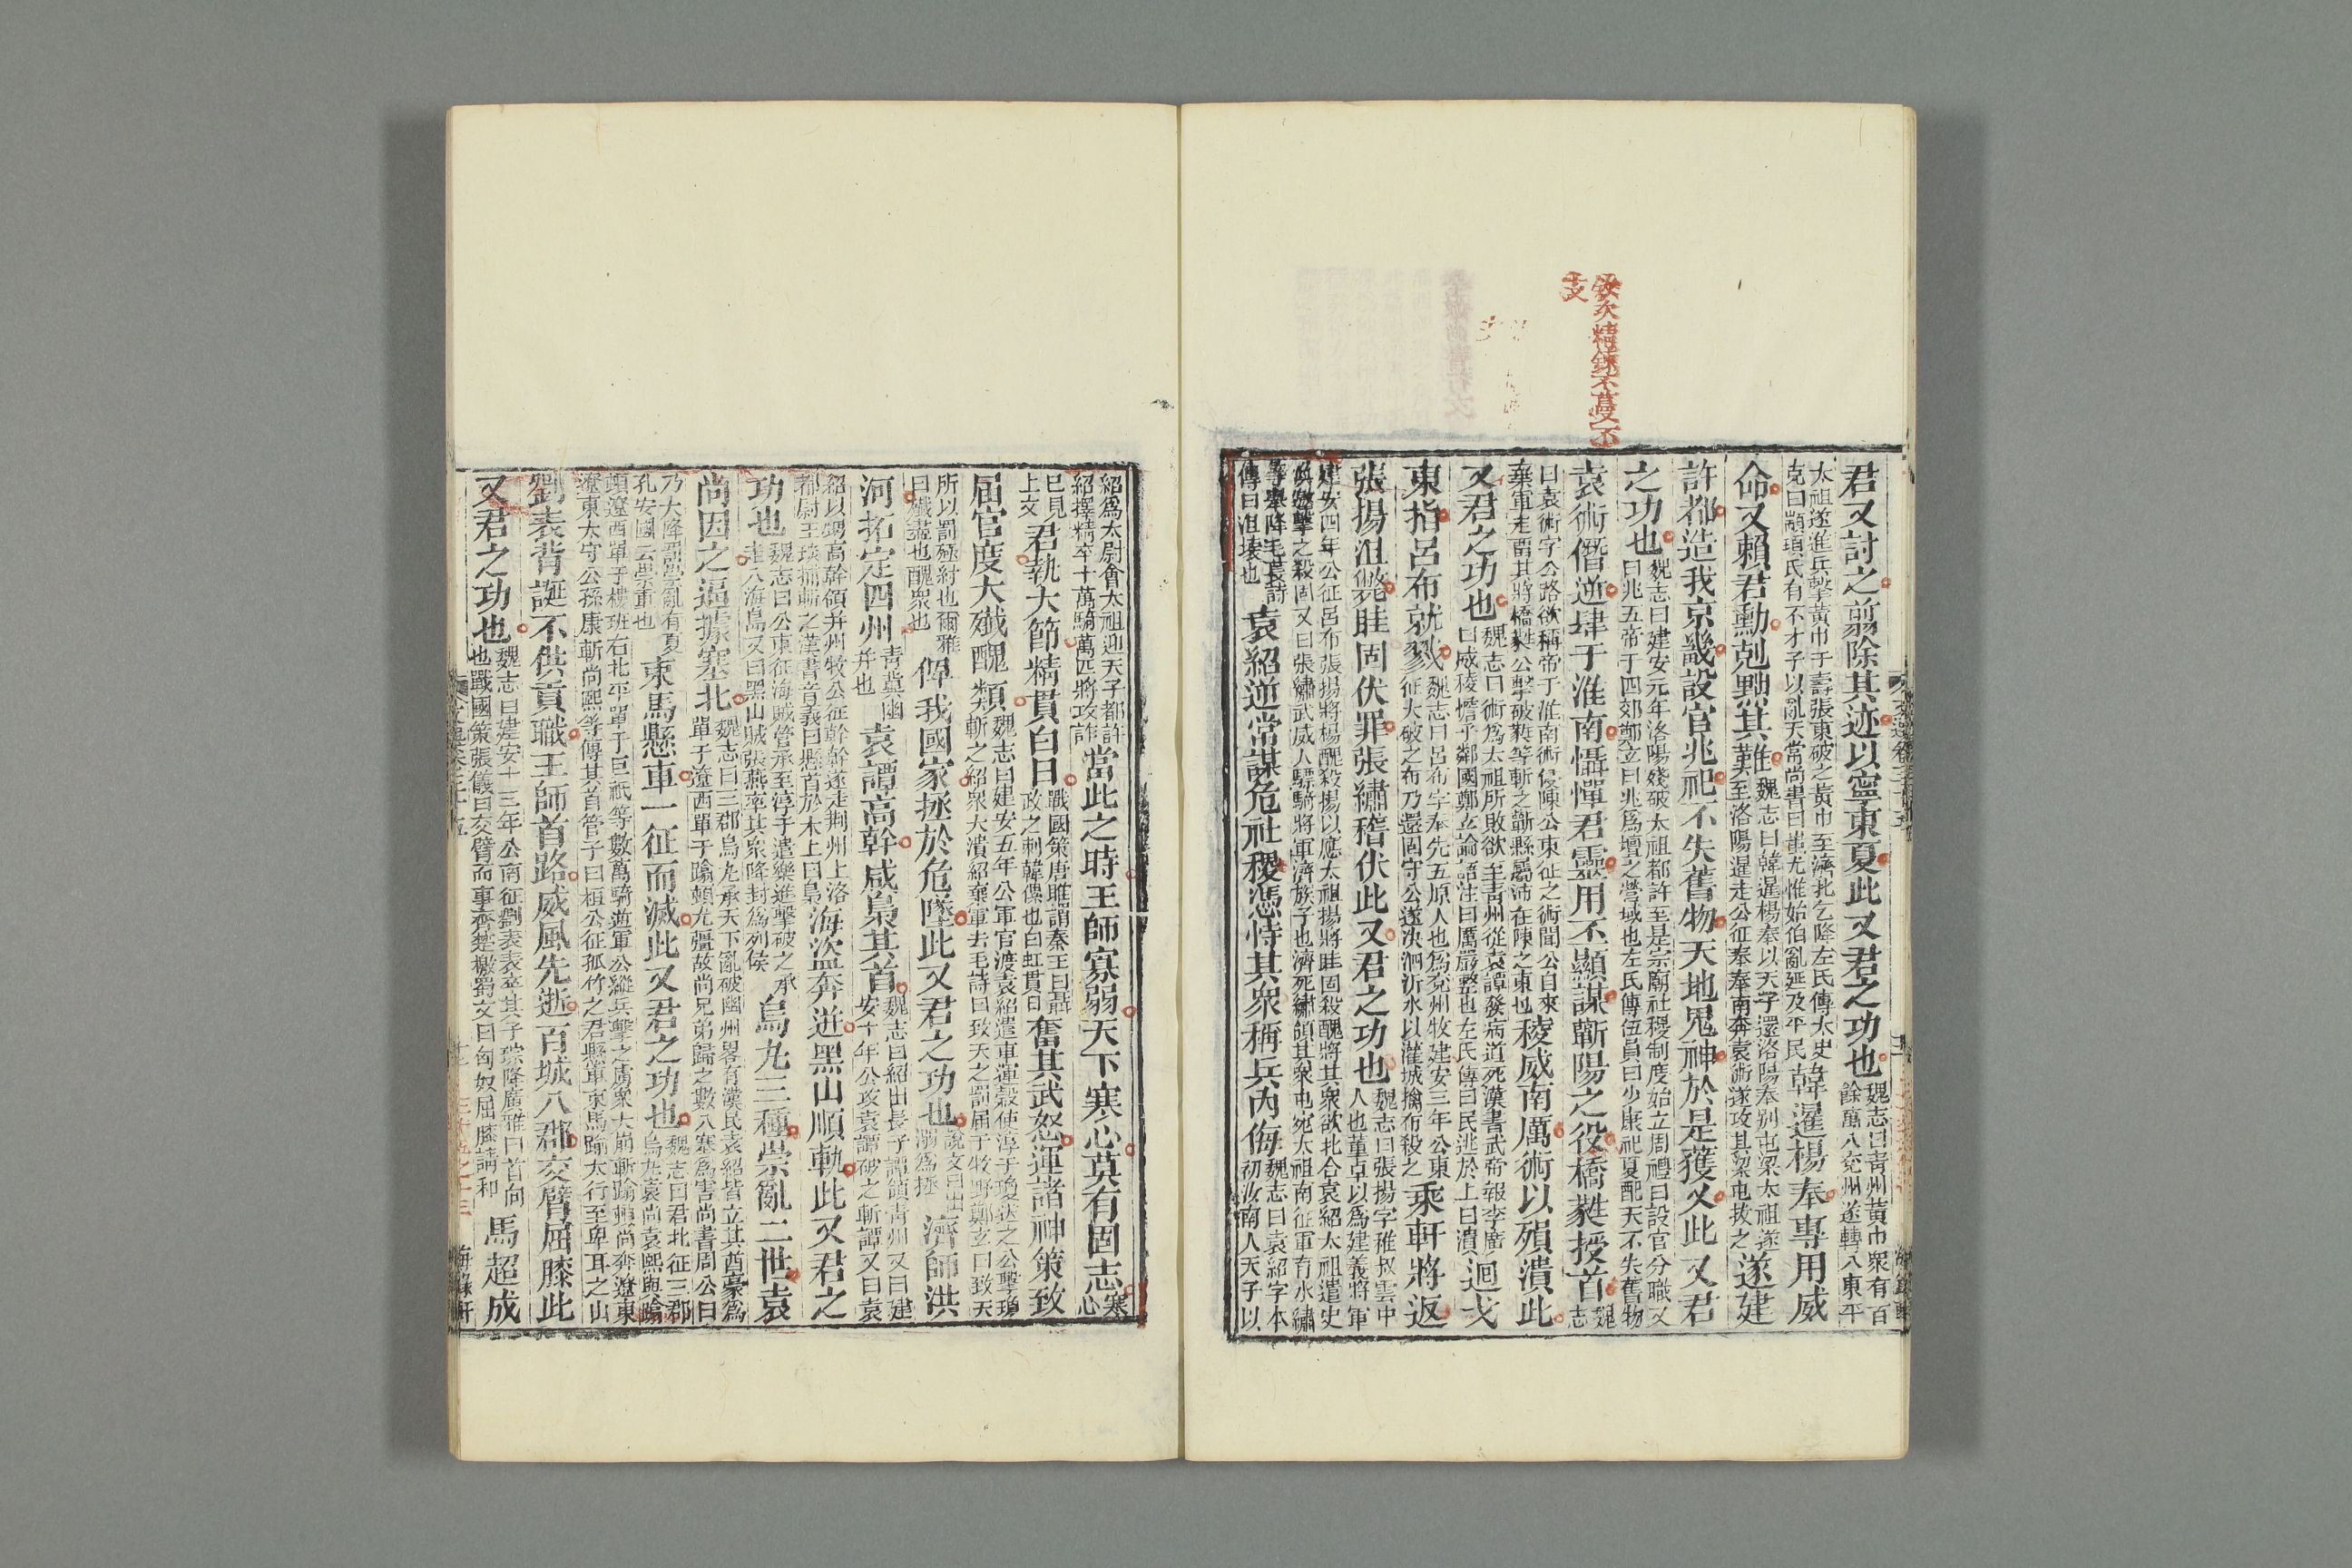 敘次精鍊不蔓不
支
君又討之翦除其迹以寧東夏此又君之功也魏志曰青州黃巾衆有百餘萬入兖州遂轉入東平
太祖遂進兵擊黃巾于壽張東破之黃巾至濟北乞降左氏傳太史克曰顓頊氏有不才子以亂天常尚書曰蚩尤惟始伯亂延及平民韓暹楊奉專用威
命又賴君勳剋黜其難魏志曰韓暹楊奉以天子還洛陽奉别屯梁太祖遂至洛陽暹走公征奉奉南奔袁術遂攻其梁屯拔之遂建
許都造我京畿設官兆祀不失舊物天地鬼神於是獲乂此又君
之功也魏志曰建安元年洛陽殘破太祖都許至是宗廟社稷制度始立周禮曰設官分職又曰兆五帝于四郊鄭立曰兆爲壇之營域也左氏傳伍員曰少康祀夏配天不失舊物
袁術僭逆肆于淮南慴憚君靈用丕顯謀蘄陽之役橋蕤授首魏志
曰袁術字公路欲稱帝于淮南術侵陳公東征之術聞公自來棄軍走畱其將橋蕤公擊破蕤等斬之蘄縣屬沛在陳之東也稜威南厲術以殞潰此
又君之功也魏志曰術爲太祖所敗欲至青州從袁譚發病道死漢書武帝報李廣曰威稜憺乎鄰國鄭立論語注曰厲嚴整也左氏傳曰民逃於上曰潰迴戈
東指呂布就戮魏志曰呂布字奉先五原人也爲兖州牧建安三年公東征大破之布乃還固守公遂决泗沂水以灌城擒布殺之乘軒將返
張揚沮斃眭固伏罪張繡稽伏此又君之功也魏志曰張揚字稚叔雲中人也董卓以爲建義將軍
建安四年公征呂布張揚將楊醜殺揚以應太祖揚將眭固殺醜將其衆欲北合袁紹太祖遣史渙邀擊之殺固又曰張繡武威人驃騎將軍濟族子也濟死繡領其衆屯宛太祖南征軍育水繡
等舉降毛萇詩傳曰沮壞也袁紹逆常謀危社稷憑恃其衆稱兵內侮魏志曰袁紹字本初汝南人天子以
紹爲太尉會太祖迎天子都許紹擇精卒十萬騎萬匹將攻許當此之時王師寡弱天下寒心莫有固志寒心
已見上文君執大節精貫白日戰國策唐雎謂秦王曰聶政之刺韓傀也白虹貫日奮其武怒運諸神策致
屆官度大殲醜類魏志曰建安五年公軍官渡袁紹遣車運穀使淳于瓊送之公擊瓊斬之紹衆大潰紹棄軍去毛詩曰致天之罰屆于牧野鄭玄曰致天
所以罰殛紂也爾雅曰殲盡也醜衆也俾我國家拯於危墜此又君之功也說文曰出溺爲拯濟師洪
河拓定四州青冀幽并也袁譚高幹咸梟其首魏志曰紹出長子譚領青州又曰建安十年公攻袁譚破之斬譚又曰袁
紹以甥高幹領并州牧公征幹幹遂走荆州上洛都尉王琰捕斬之漢書音義曰懸首於木上曰梟海盜奔迸黑山順軌此又君之
功也魏志曰公東征海賊管承至淳于遣樂進擊破之承走入海島又曰黑山賊張燕率其衆降封爲列侯烏丸三種崇亂二世袁
尚因之逼據塞北魏志曰三郡烏丸承天下亂破幽州畧有漢民袁紹皆立其酋豪爲單于遼西單于蹋頓尤彊故尚兄弟歸之數入塞爲害尚書周公曰
乃大降罰崇亂有夏孔安國云崇重也束馬懸車一征而滅此又君之功也魏志曰君北征三郡烏丸袁尚袁熙與蹋
頓遼西單于樓班右北平單于等數萬騎逆軍公縱兵擊之虜衆大崩斬蹋頓尚奔遼東遼東太守公孫康斬尚熙等傳其首管子曰桓公征孤竹之君懸車束馬踰太行至卑耳之山
劉表背誕不供貢職王師首路威風先逝百城八郡交臂屈膝此
又君之功也魏志曰建安十三年公南征劉表表卒其子琮降廣雅曰首向也戰國策張儀曰交臂而事齊楚檄蜀文曰匈奴屈膝請和馬超成
海錄軒